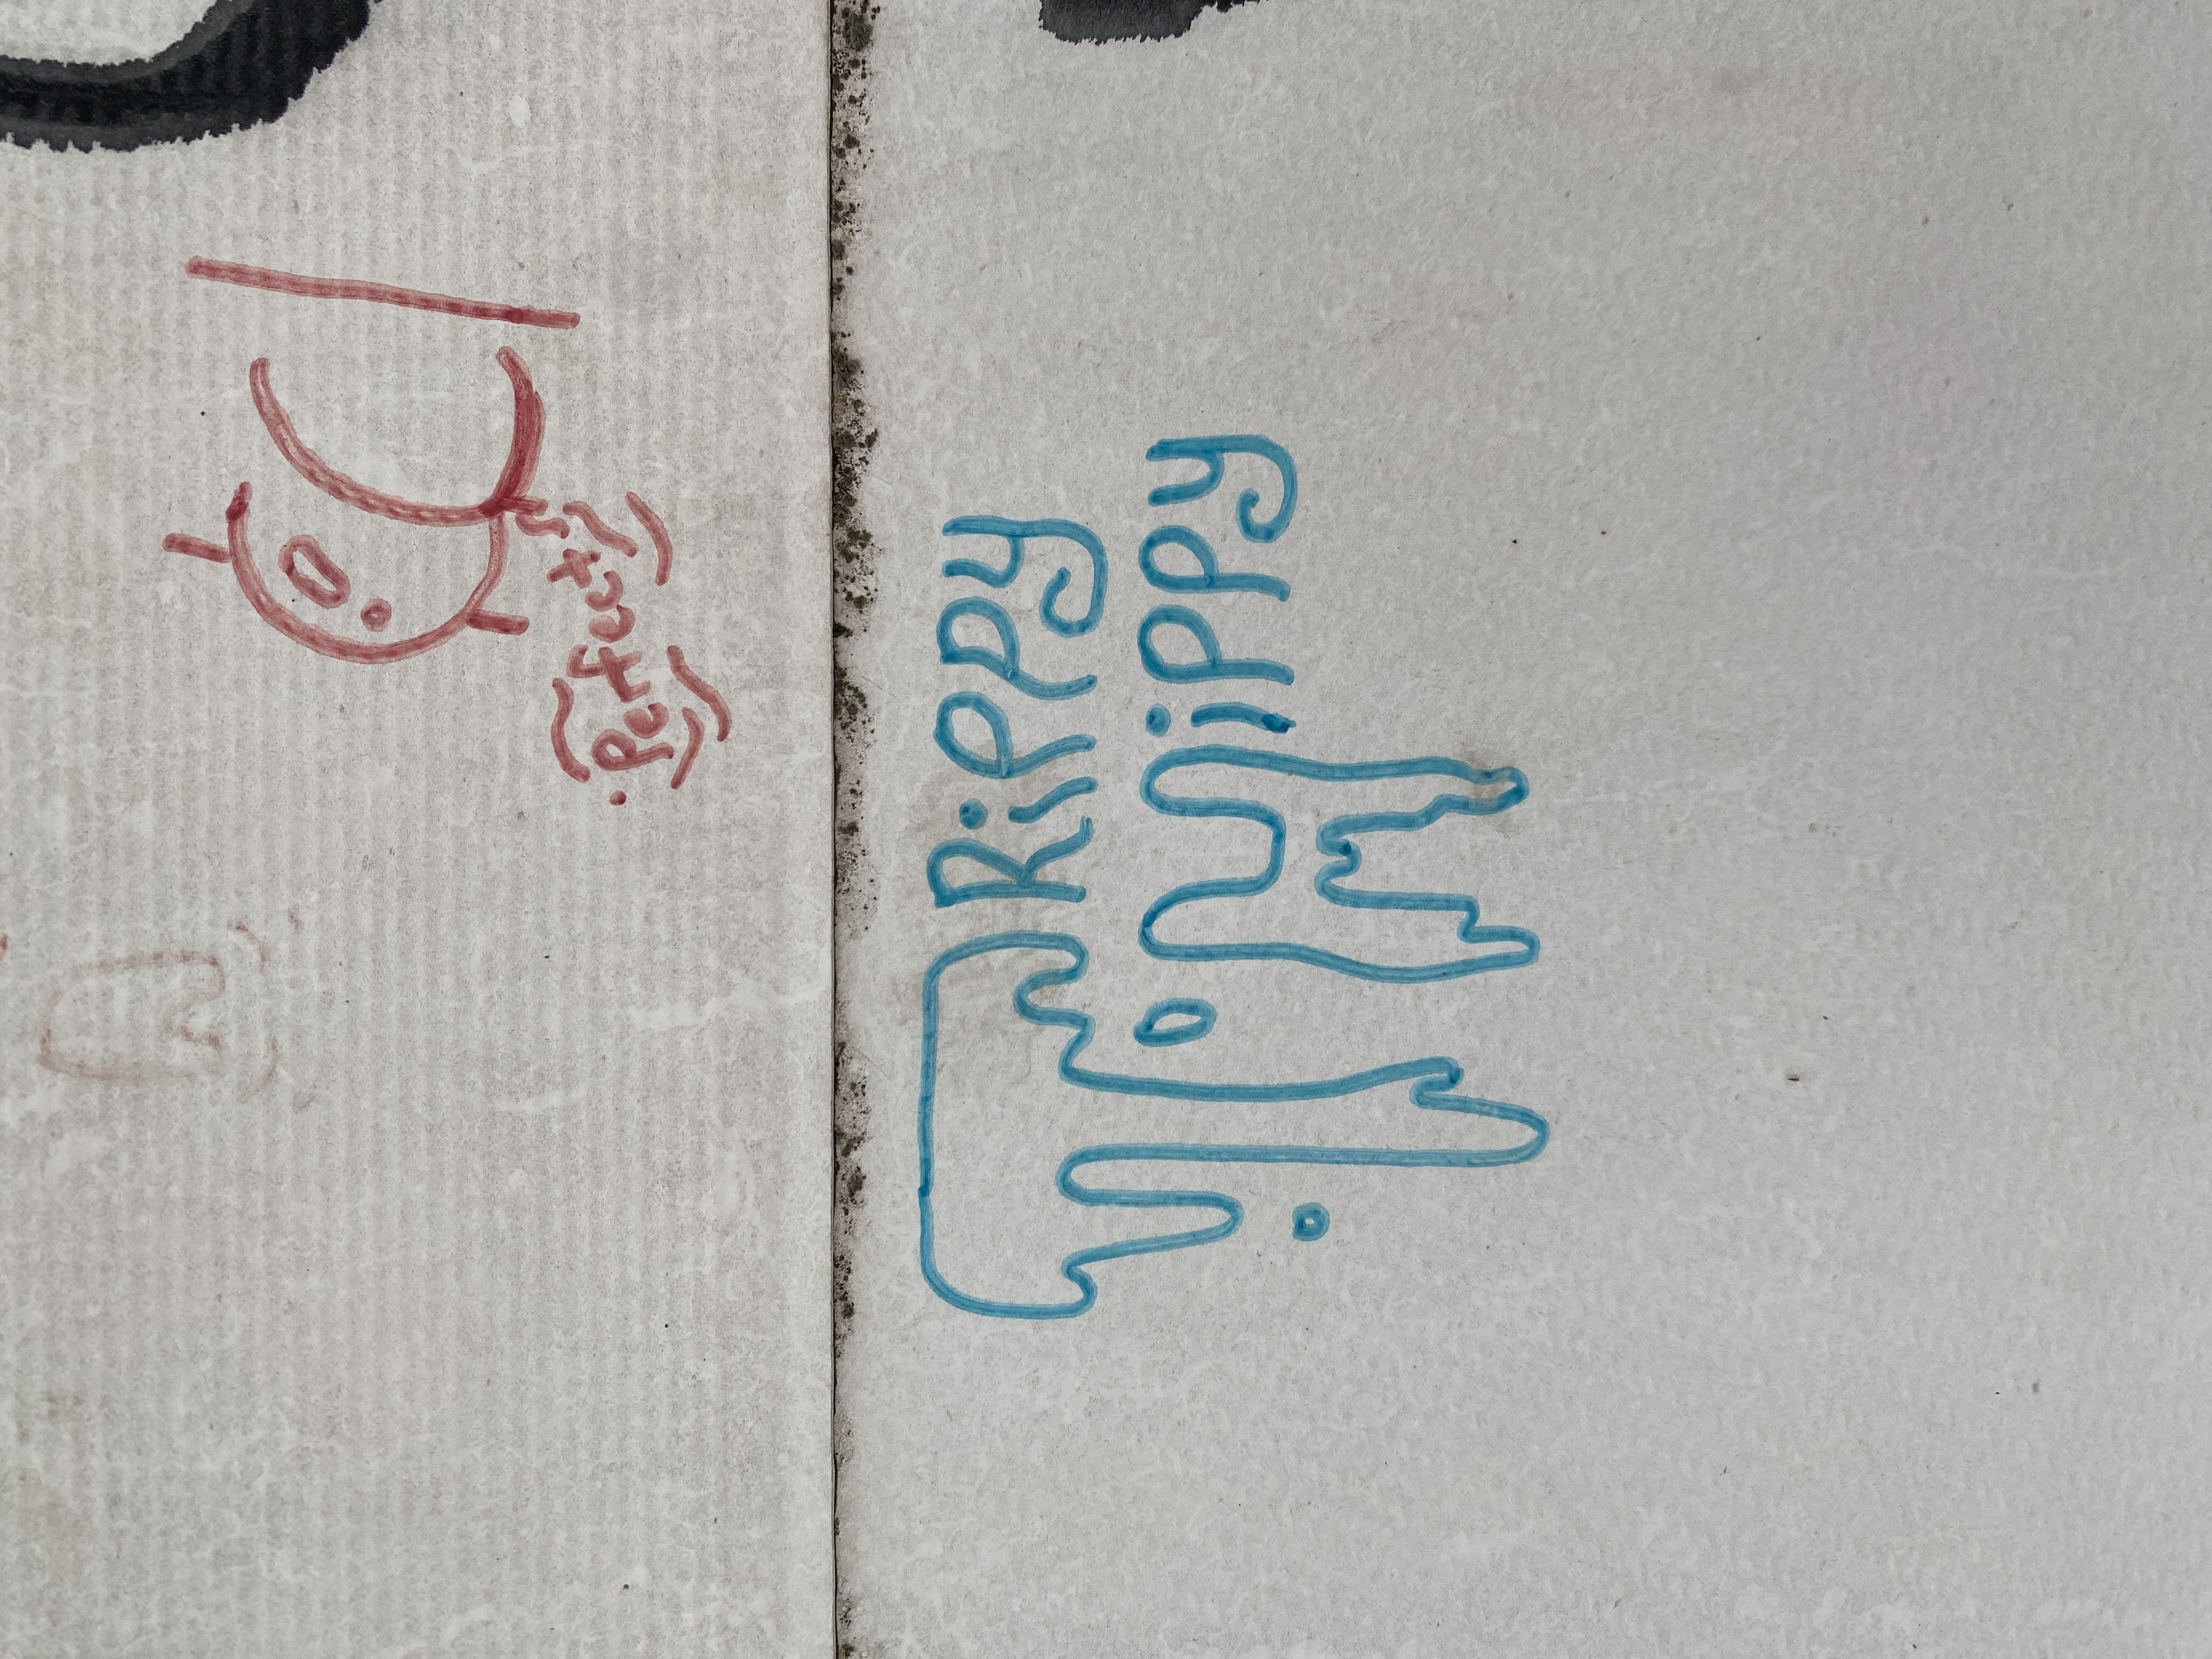 Perfect
TRippy
Hippy